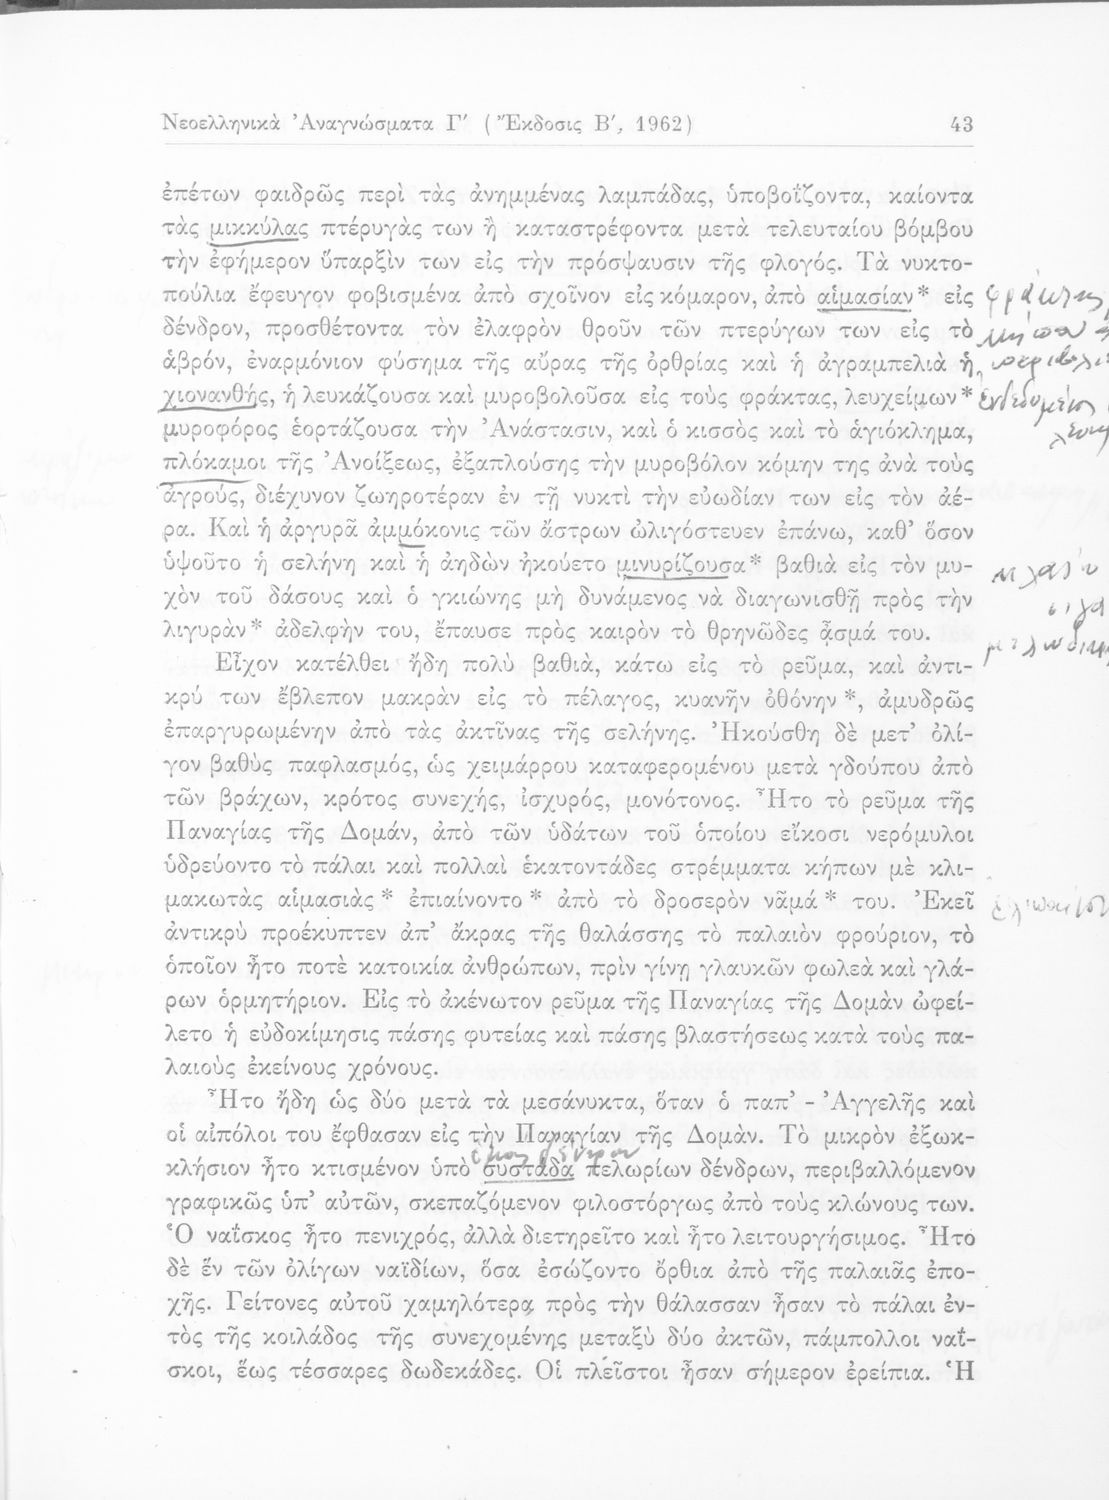 Νεοελληνικὰ Ἀναγνώσματα Γ΄ (Ἔκδοσις Β΄, 1962) 43
ἐπέτων φαιδρῶς περὶ τὰς ἀνημμένας λαμπάδας, ὑποβοΐζοντα, καίοντα
τὰς μικκύλας πτέρυγάς των ἢ καταστρέφοντα μετὰ τελευταίου βόμβου
τὴν ἐφήμερον ὕπαρξίν των εἰς τὴν πρόσψαυσιν τῆς φλογός. Τὰ νυκτο-
πούλια ἔφευγον φοβισμένα ἀπὸ σχοῖνον εἰς κόμαρον, ἀπὸ αἱμασίαν* εἰς φράκτης
δένδρον, προσθέτοντα τὸν ἐλαφρὸν θροῦν τῶν πτερύγων των εἰς τὸ κήπου
ἁβρόν, ἐναρμόνιον φύσημα τῆς αὔρας τῆς ὀρθρίας καὶ ἡ ἀγραμπελιὰ ἡ
χιονανθής, ἡ λευκάζουσα καὶ μυροβολοῦσα εἰς τοὺς φράκτας, λευχείμων* ἐνδεδυμένος
μυροφόρος ἑορτάζουσα τὴν Ἀνάστασιν, καὶ ὁ κισσὸς καὶ τὸ ἁγιόκλημα,
πλόκαμοι τῆς Ἀνοίξεως, ἐξαπλούσης τὴν μυροβόλον κόμην της ἀνὰ τοὺς
ἀγρούς, διέχυνον ζωηροτέραν ἐν τῇ νυκτὶ τὴν εὐωδίαν των εἰς τὸν ἀέ-
ρα. Καὶ ἡ ἀργυρᾶ ἀμμόκονις τῶν ἄστρων ὠλιγόστευεν ἐπάνω, καθ' ὅσον
ὑψοῦτο ἡ σελήνη καὶ ἡ ἀηδὼν ἠκούετο μινυρίζουσα* βαθιὰ εἰς τὸν μυ-
χὸν τοῦ δάσους καὶ ὁ γκιώνης μὴ δυνάμενος νὰ διαγωνισθῇ πρὸς τὴν
λιγυρὰν* ἀδελφὴν του, ἔπαυσε πρὸς καιρὸν τὸ θρηνῶδες ᾆσμά του.
Εἶχον κατέλθει ἤδη πολὺ βαθιὰ, κάτω εἰς τὸ ρεῦμα, καὶ ἀντι-
κρύ των ἔβλεπον μακρὰν εἰς τὸ πέλαγος, κυανῆν ὀθόνην*, ἀμυδρῶς
ἐπαργυρωμένην ἀπὸ τὰς ἀκτῖνας τῆς σελήνης. Ἠκούσθη δὲ μετ' ὀλί-
γον βαθὺς παφλασμός, ὡς χειμάρρου καταφερομένου μετὰ γδούπου ἀπὸ
τῶν βράχων, κρότος συνεχής, ἰσχυρός, μονότονος. Ἦτο τὸ ρεῦμα τῆς
Παναγίας τῆς Δομάν, ἀπὸ τῶν ὑδάτων τοῦ ὁποίου εἴκοσι νερόμυλοι
ὑδρεύοντο τὸ πάλαι καὶ πολλαὶ ἑκατοντάδες στρέμματα κήπων μὲ κλι-
μακωτὰς αἱμασιὰς* ἐπιαίνοντο* ἀπὸ τὸ δροσερὸν νᾶμά* του. Ἐκεῖ
ἀντικρὺ προέκυπτεν ἀπ' ἄκρας τῆς θαλάσσης τὸ παλαιὸν φρούριον, τὸ
ὁποῖον ἦτο ποτὲ κατοικία ἀνθρώπων, πρὶν γίνῃ γλαυκῶν φωλεὰ καὶ γλά-
ρων ὁρμητήριον. Εἰς τὸ ἀκένωτον ρεῦμα τῆς Παναγίας τῆς Δομὰν ὠφεί-
λετο ἡ εὐδοκίμησις πάσης φυτείας καὶ πάσης βλαστήσεως κατὰ τοὺς πα-
λαιοὺς ἐκείνους χρόνους.
Ἦτο ἤδη ὡς δύο μετὰ τὰ μεσάνυκτα, ὅταν ὁ παπ' - Ἀγγελῆς καὶ
οἱ αἰπόλοι του ἔφθασαν εἰς τὴν Παναγίαν τῆς Δομὰν. Τὸ μικρὸν ἐξωκ-
κλήσιον ἦτο κτισμένον ὑπὸ συστάδα πελωρίων δένδρων, περιβαλλόμενον
γραφικῶς ὑπ' αὐτῶν, σκεπαζόμενον φιλοστόργως ἀπὸ τοὺς κλώνους των.
Ὁ ναΐσκος ἦτο πενιχρός, ἀλλὰ διετηρεῖτο καὶ ἦτο λειτουργήσιμος. Ἦτο
δὲ ἓν τῶν ὀλίγων ναϊδίων, ὅσα ἐσώζοντο ὄρθια ἀπὸ τῆς παλαιᾶς ἐπο-
χῆς. Γείτονες αὐτοῦ χαμηλότερα πρὸς τὴν θάλασσαν ἦσαν τὸ πάλαι ἐν-
τὸς τῆς κοιλάδος τῆς συνεχομένης μεταξὺ δύο ἀκτῶν, πάμπολλοι ναΐ-
σκοι, ἕως τέσσαρες δωδεκάδες. Οἱ πλεῖστοι ἦσαν σήμερον ἐρείπια. Ἡ